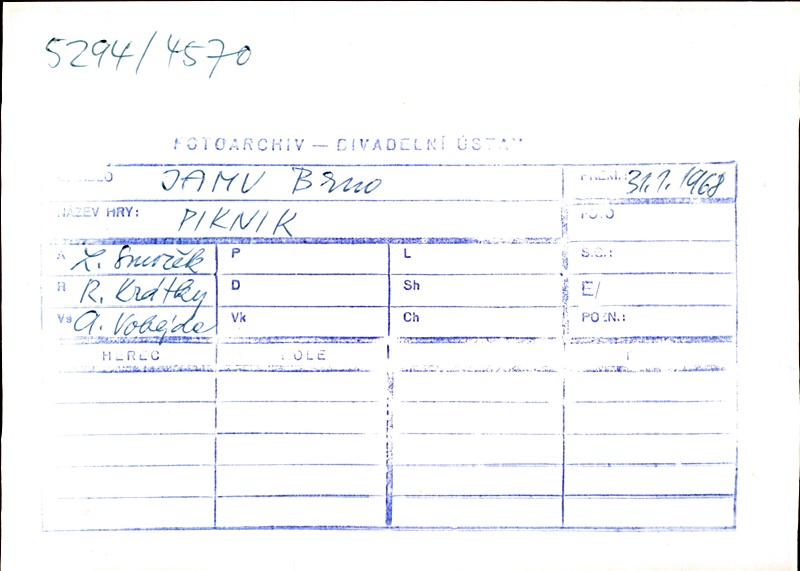 5294/4570
FOTOARCHIV — DIVADELNÍ ÚSTAV
JAMU Brno PREM.: 31.1.1968
NÁZEV HRY: PIKNIK FOTO
A L. Smrček P L S.G.:
R R. Krátky D Sh E/
Vs A. Vobejda Vk Ch POZN.:
HEREC ROLE